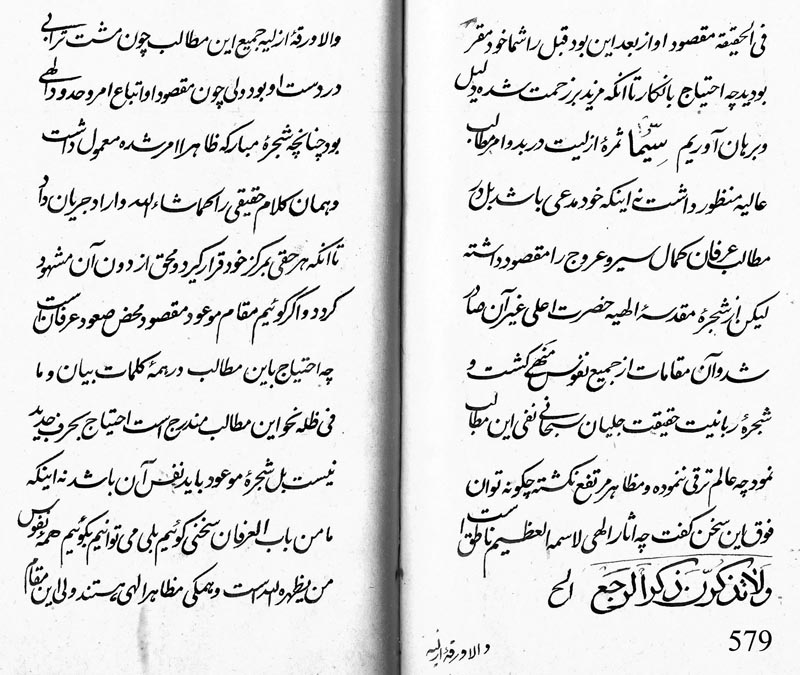 فی الحقیقة مقصود او از بعد این بود قبل را شما خود مقر
بودید چه احتیاج بانکار تا آنکه مزید بر زحمت شده دلیل
و برهان آوریم سیّما ثمرهٔ ازلیت در بدو امر مطالب
عالیه منظور داشت نه اینکه خود مدعی باشد بل در
مطالب عرفان کمال سیر و عروج را مقصود داشته
لیکن از شجرهٔ مقدسهٔ الهیه حضرت اعلی غیر آن صادر
شد و آن مقامات از جمیع نفوس منتهی گشت و
شجرهٔ ربانیت حقیقت جلیان سبحانی نفی این مطالب
نمود چه عالم ترقی ننموده و مظاهر مرتفع نگشته چگونه توان
فوق این سخن گفت چه آثار الهی لاسمه العظیم ناطق است
ولا تذکرن ذکر الرجع الخ
والا ورقهٔ ازلیه
579
والا ورقهٔ ازلیه جمیع این مطالب چون مشت ترابی
در دست او بود ولی چون مقصود او اتباع امر و حدود الهی
بود چنانچه شجرهٔ مبارکه ظاهرا امر شده معمول داشت
و همان کلام حقیقی را کلما شاء الله و اراد جریان داد
تا آنکه هر حقی بمرکز خود قرار گیرد و محق از دون آن مشهود
گردد و اگر گوئیم مقام موعود مقصود محض صعود عرفان است
چه احتیاج باین مطالب در همهٔ کلمات بیان و ما
فی ظله نحو این مطالب مندرج است احتیاج بحرف جدید
نیست بل شجرهٔ موعود باید نفس آن باشد نه اینکه
ما من باب العرفان سخنی گوئیم بلی می توانیم بگوئیم همهٔ نفوس
من یظهره الله است و همگی مظاهر الهی هستند ولی این مقام